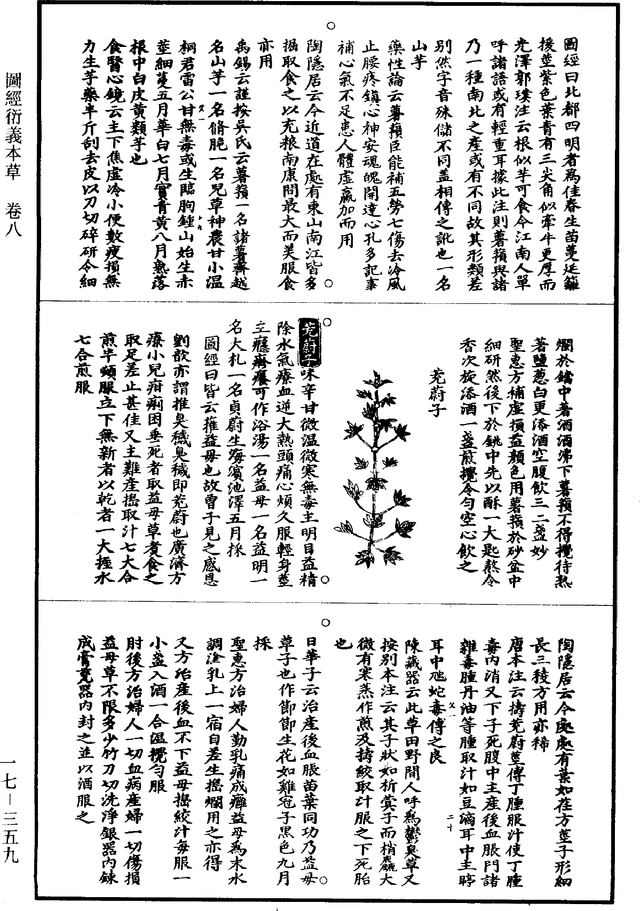 圖經衍義本草　卷八
圖經曰北都四明者為佳春生苗蔓延籬
援莖紫色葉青有三尖角似牽牛更厚而
光澤郭璞注云根似芋可食今江南人單
呼諸語或有輕重耳據此注則薯蕷與諸
乃一種南北之產或有不同故其形類差
別然字音殊儲不同蓋相傳之訛也一名
山芋
藥性論云薯蕷臣能補五勞七傷去冷風
止腰疼鎮心神安魂魄開達心孔多記事
補心氣不足患人體虛羸加而用
陶隱居云今近道在處有東山南江皆多
掘取食之以充粮南康間最大而美服食
亦用
禹錫云謹按吳氏云薯蕷一名諸薯齊越
名山芋一名脩脆一名兒草神農甘小溫
桐君雷公甘無毒或生臨朐鍾山始生赤
莖細蔓五月華白七月實青黃八月熟落
根中白皮黃類芋也
食醫心鏡云主下焦虛冷小便數瘦損無
力生芋藥半斤刮去皮以刀切碎研令細
爛於鐺中著酒酒沸下薯蕷不得攪待熟
著鹽葱白更添酒空腹飲三二盞妙
聖惠方補虛損益顏色用薯蕷於砂盆中
細研然後下於銚中先以酥一大匙熬令
香次旋添酒一盞煎攪令勻空心飲之
茺蔚子
茺蔚子味辛甘微溫微寒無毒主明目益精
除水氣療血逆大熱頭痛心煩久服輕身莖
主癮疹癢可作浴湯一名益母一名益明一
名大札一名貞蔚生海濱池澤五月採
圖經曰皆云蓷益母也故曾子見之感恩
劉歆亦謂蓷臭穢臭穢即茺蔚也廣濟方
療小兒疳痢困垂死者取益母草煮食之
取足差止甚佳又主難產擣取汁七大合
煎半頓服立下無新者以乾者一大握水
七合煎服
陶隱居云今處處有葉如荏方莖子形細
長三稜方用亦稀
唐本注云擣茺蔚莖傅丁腫服汁使丁腫
毒內消又下子死腹中主產後血脹悶諸
雜毒腫丹油等腫取汁如豆滴耳中主聤
耳中虺蛇毒傅之良
陳藏器云此草田野間人呼為鬱臭草又
按別本注云其子狀如菥蓂子而稍麤大
微有寒蒸作煎及擣絞取汁服之下死胎
也
日華子云治產後血脹苗葉同功乃益母
草子也作節節生花如雞冠子黑色九月
採
聖惠方治婦人勒乳痛成癰益母為末水
調塗乳上一宿自差生擣爛用之亦得
又方治產後血不下益母擣絞汁每服一
小盞入酒一合溫攪勻服
肘後方治婦人一切血病產婦一切傷損
益母草不限多少竹刀切洗淨銀器內鍊
成膏瓷器內封之並以酒服之
一七—三五九